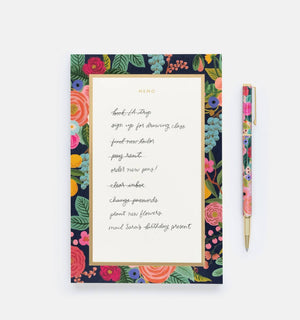 MEMO
book flights
sign up for drawing class
find new tailor
pay rent
order new pens!
clear inbox
change passwords
plant new flowers
mail Sara's birthday present